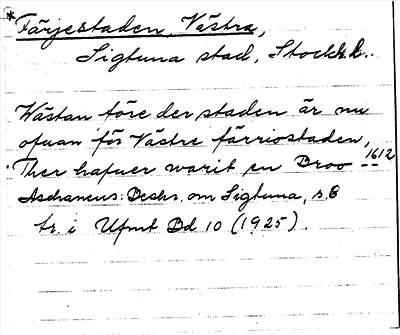 *Färjestaden, Västra,
Sigtuna stad, Stockh.l..
Wästan före der staden är nu
ofuan för Västre färriostaden,
Ther hafuer warit en Broo -- 1612
Aschaneus: Beskr. om Sigtuna, s. 8
tr. i Ufmt Bd 10 (1925).